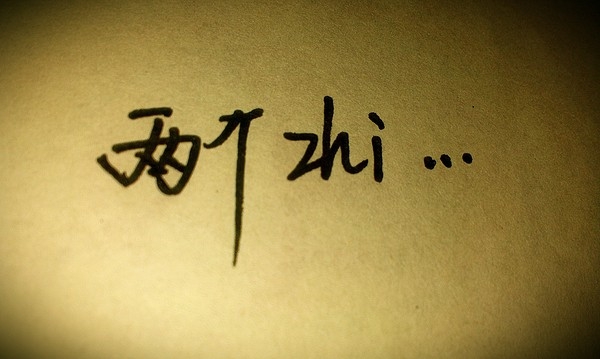 两个zhi...